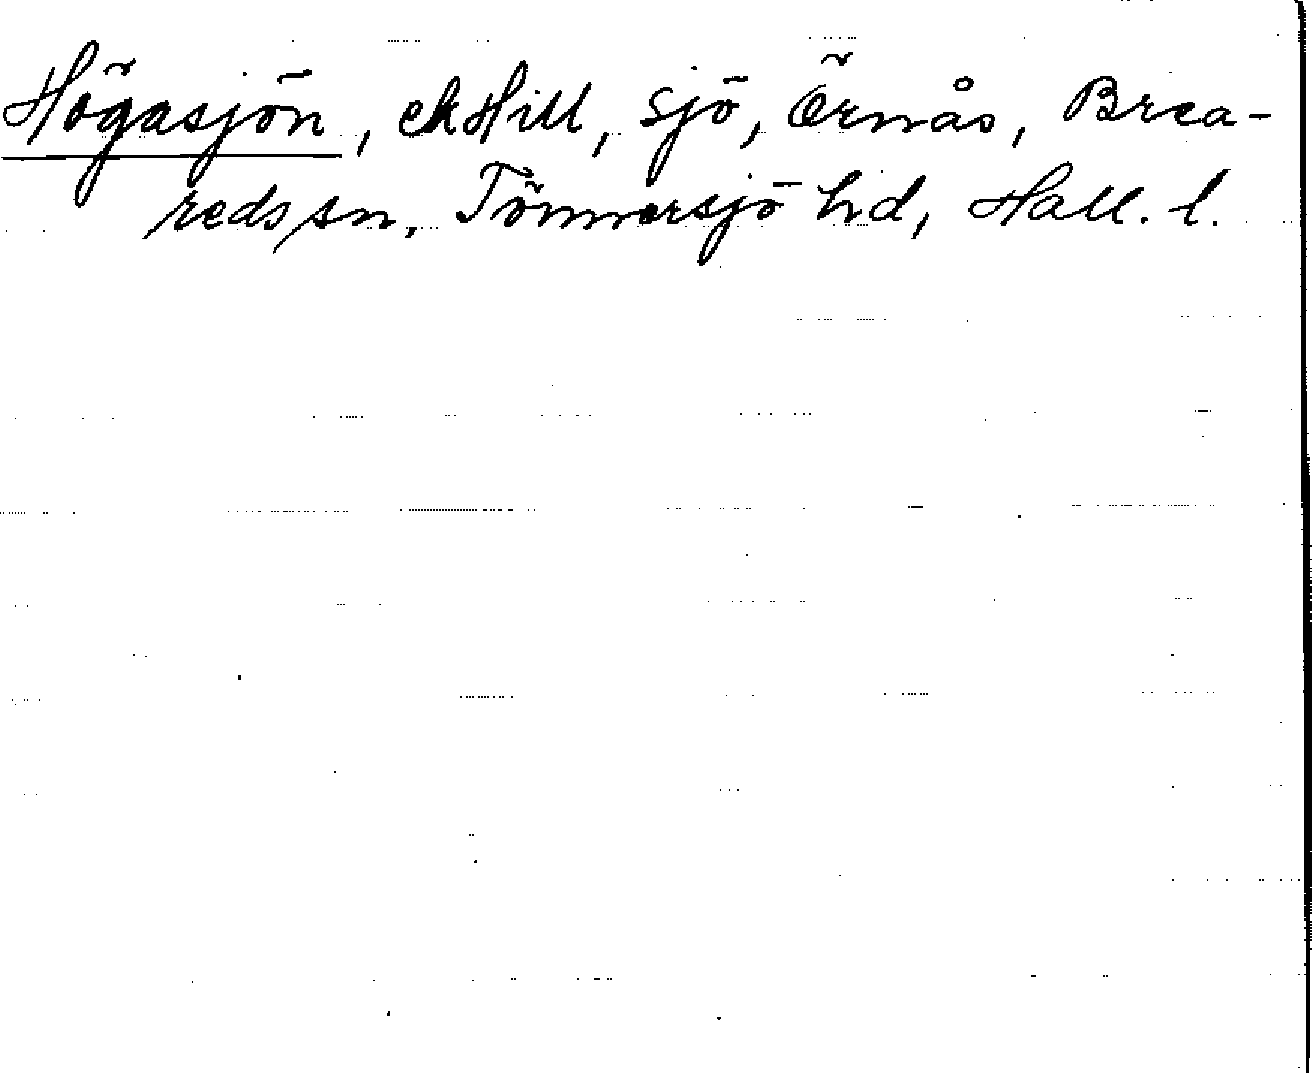 Högasjön, ek Hill, sjö, Örnås, Brea-
reds sn, Tönnersjö hd, Hall. l.